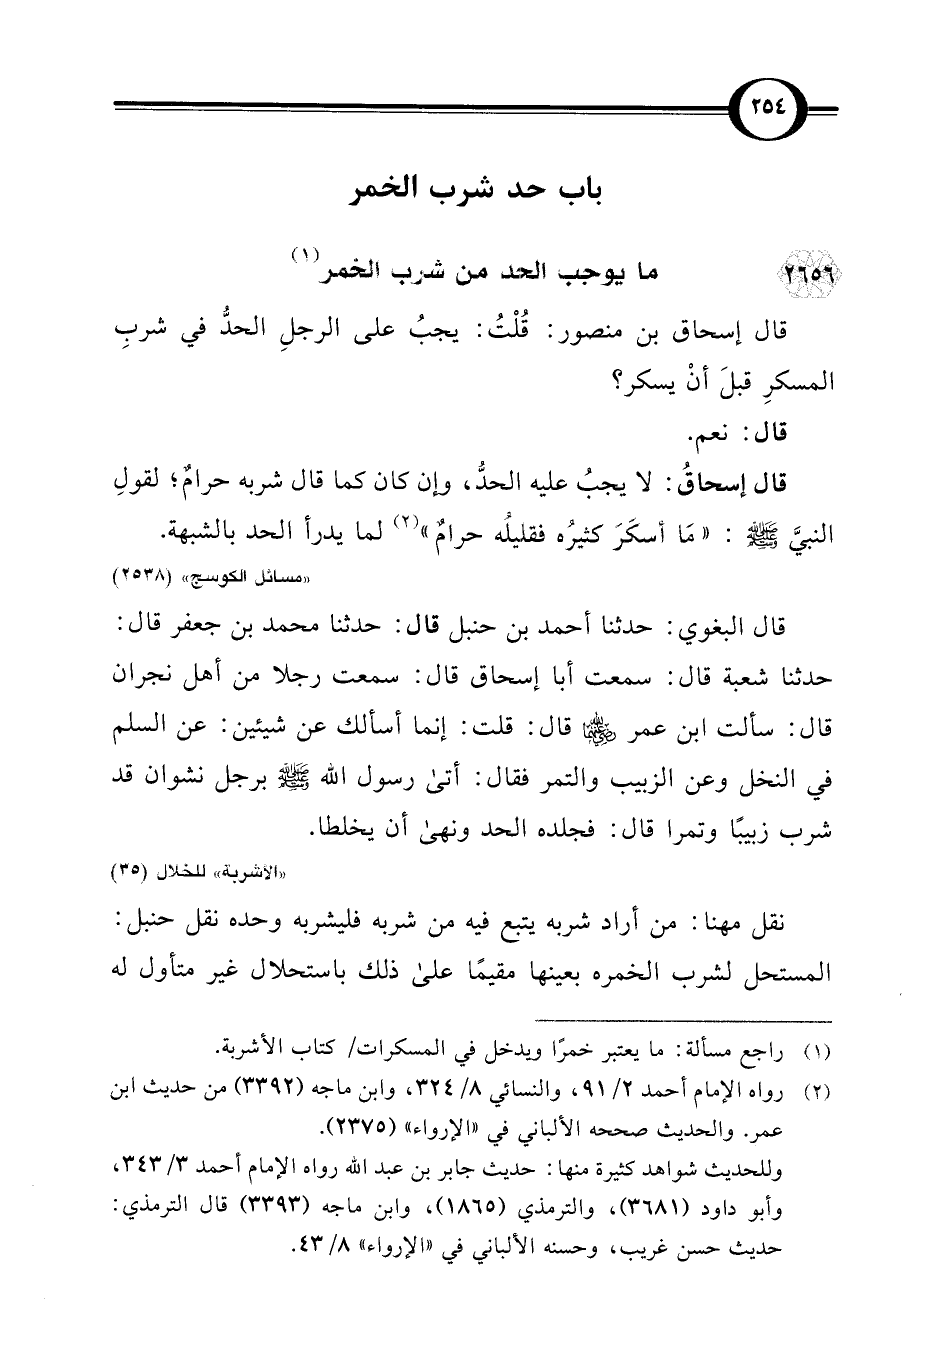 ٢٥٤
باب حد شرب الخمر
٢٦٥٦ ما يوجب الحد من شرب الخمر(١)
قال إسحاق بن منصور: قُلْتُ: يجبُ على الرجلِ الحدُّ في شربِ
المسكرِ قبلَ أنْ يسكر؟
قال: نعم.
قال إسحاقُ: لا يجبُ عليه الحدُّ، وإن كان كما قال شربه حرامٌ؛ لقولِ
النبيَّ ﷺ : «مَا أسكَرَ كثيرُه فقليلُه حرامٌ»(٢) لما يدرأ الحد بالشبهة.
«مسائل الكوسج» (٢٥٣٨)
قال البغوي: حدثنا أحمد بن حنبل قال: حدثنا محمد بن جعفر قال:
حدثنا شعبة قال: سمعت أبا إسحاق قال: سمعت رجلا من أهل نجران
قال: سألت ابن عمر رضي الله عنهما قال: قلت: إنما أسألك عن شيئين: عن السلم
في النخل وعن الزبيب والتمر فقال: أتىٰ رسول الله ﷺ برجل نشوان قد
شرب زبيبًا وتمرا قال: فجلده الحد ونهىٰ أن يخلطا.
«الأشربة» للخلال (٣٥)
نقل مهنا: من أراد شربه يتبع فيه من شربه فليشربه وحده نقل حنبل:
المستحل لشرب الخمره بعينها مقيمًا علىٰ ذلك باستحلال غير متأول له
(١) راجع مسألة: ما يعتبر خمرًا ويدخل في المسكرات/ كتاب الأشربة.
(٢) رواه الإمام أحمد ٢/ ٩١، والنسائي ٨/ ٣٢٤، وابن ماجه (٣٣٩٢) من حديث ابن
عمر. والحديث صححه الألباني في «الإرواء» (٢٣٧٥).
وللحديث شواهد كثيرة منها: حديث جابر بن عبد الله رواه الإمام أحمد ٣/ ٣٤٣،
وأبو داود (٣٦٨١)، والترمذي (١٨٦٥)، وابن ماجه (٣٣٩٣) قال الترمذي:
حديث حسن غريب، وحسنه الألباني في «الإرواء» ٨/ ٤٣.